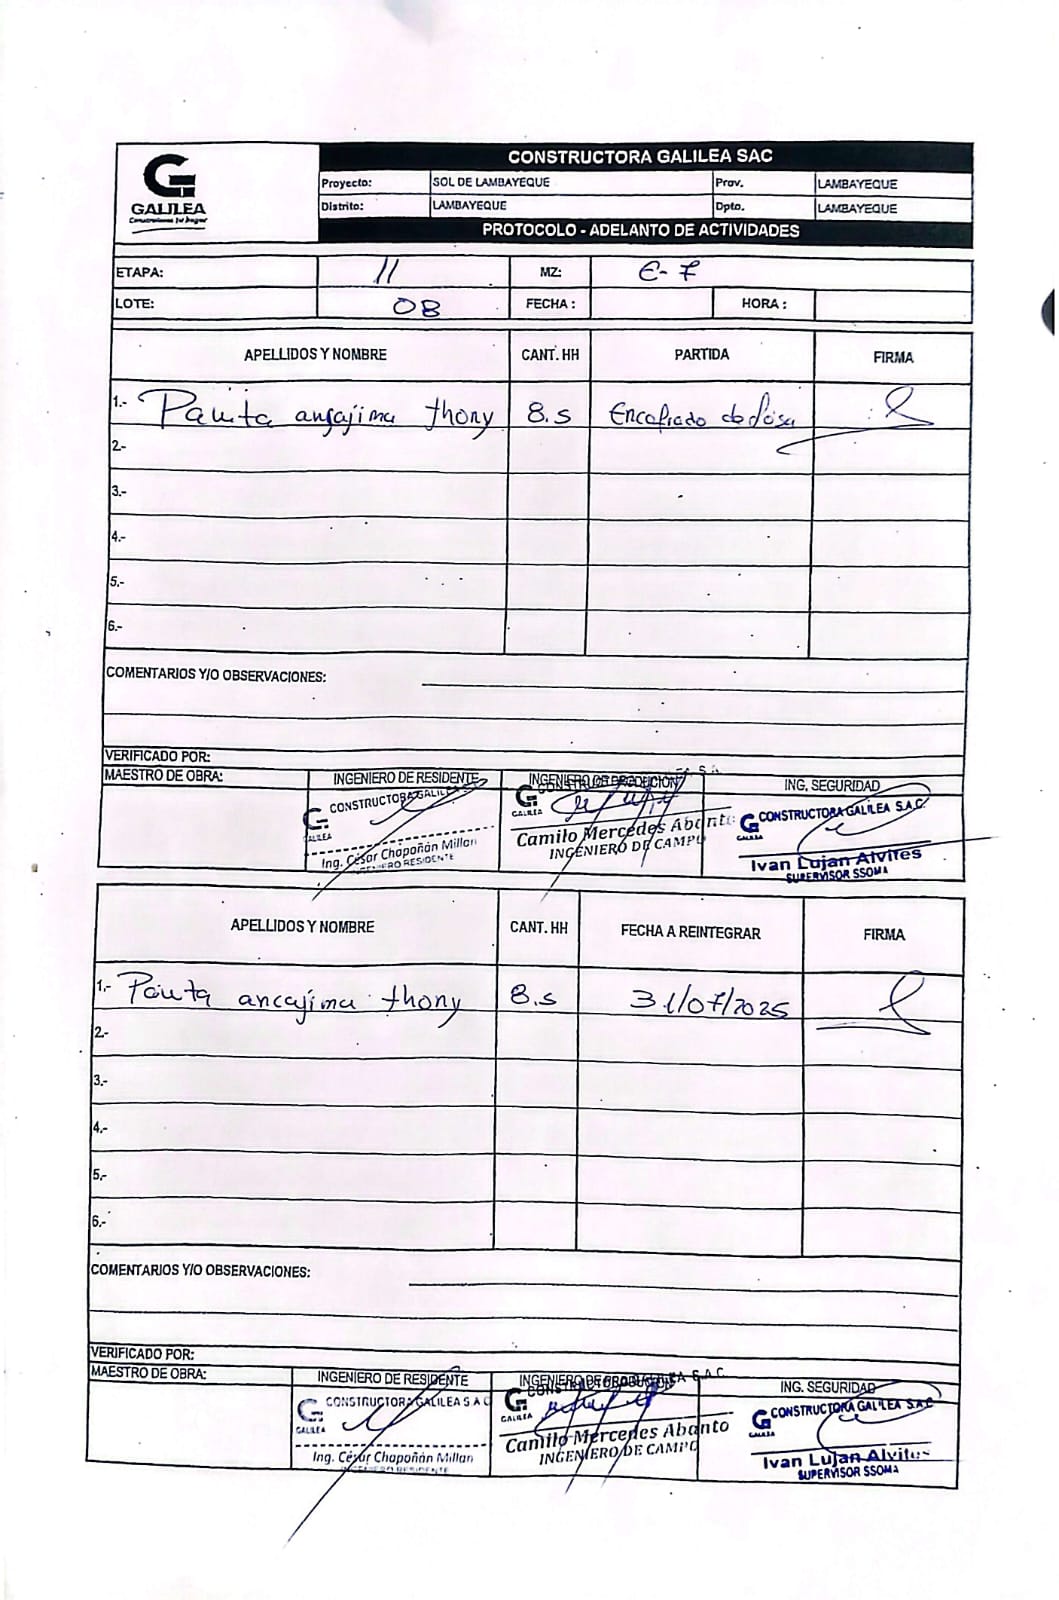 CONSTRUCTORA GALILEA SAC
GALILEA
Construimos tu hogar
Proyecto: SOL DE LAMBAYEQUE Prov. LAMBAYEQUE
Distrito: LAMBAYEQUE Dpto. LAMBAYEQUE
PROTOCOLO - ADELANTO DE ACTIVIDADES
ETAPA: 11 MZ: E-7
LOTE: 08 FECHA: HORA:
APELLIDOS Y NOMBRE CANT. HH PARTIDA FIRMA
1.- Pauta ancajima thony 8.5 Encofrado de losa
2.-
3.-
4.-
5.-
6.-
COMENTARIOS Y/O OBSERVACIONES:
VERIFICADO POR:
MAESTRO DE OBRA: INGENIERO DE RESIDENTE INGENIERO DE PRODUCION ING. SEGURIDAD
CONSTRUCTORA GALILEA
GALILEA
Ing. César Chapoñán Millan
INGENIERO RESIDENTE
GALILEA
Camilo Mercedes Abanto
INGENIERO DE CAMPO
CONSTRUCTORA GALILEA S.A.C.
GALILEA
Ivan Lujan Alvites
SUPERVISOR SSOMA
APELLIDOS Y NOMBRE CANT. HH FECHA A REINTEGRAR FIRMA
1.- Pauta ancajima thony 8.5 31/07/2025
2.-
3.-
4.-
5.-
6.-
COMENTARIOS Y/O OBSERVACIONES:
VERIFICADO POR:
MAESTRO DE OBRA: INGENIERO DE RESIDENTE INGENIERO DE PRODUCION ING. SEGURIDAD
CONSTRUCTORA GALILEA S A C
GALILEA
Ing. César Chapoñán Millan
INGENIERO RESIDENTE
GALILEA
Camilo Mercedes Abanto
INGENIERO DE CAMPO
CONSTRUCTORA GALILEA S.A.C
GALILEA
Ivan Lujan Alvites
SUPERVISOR SSOMA